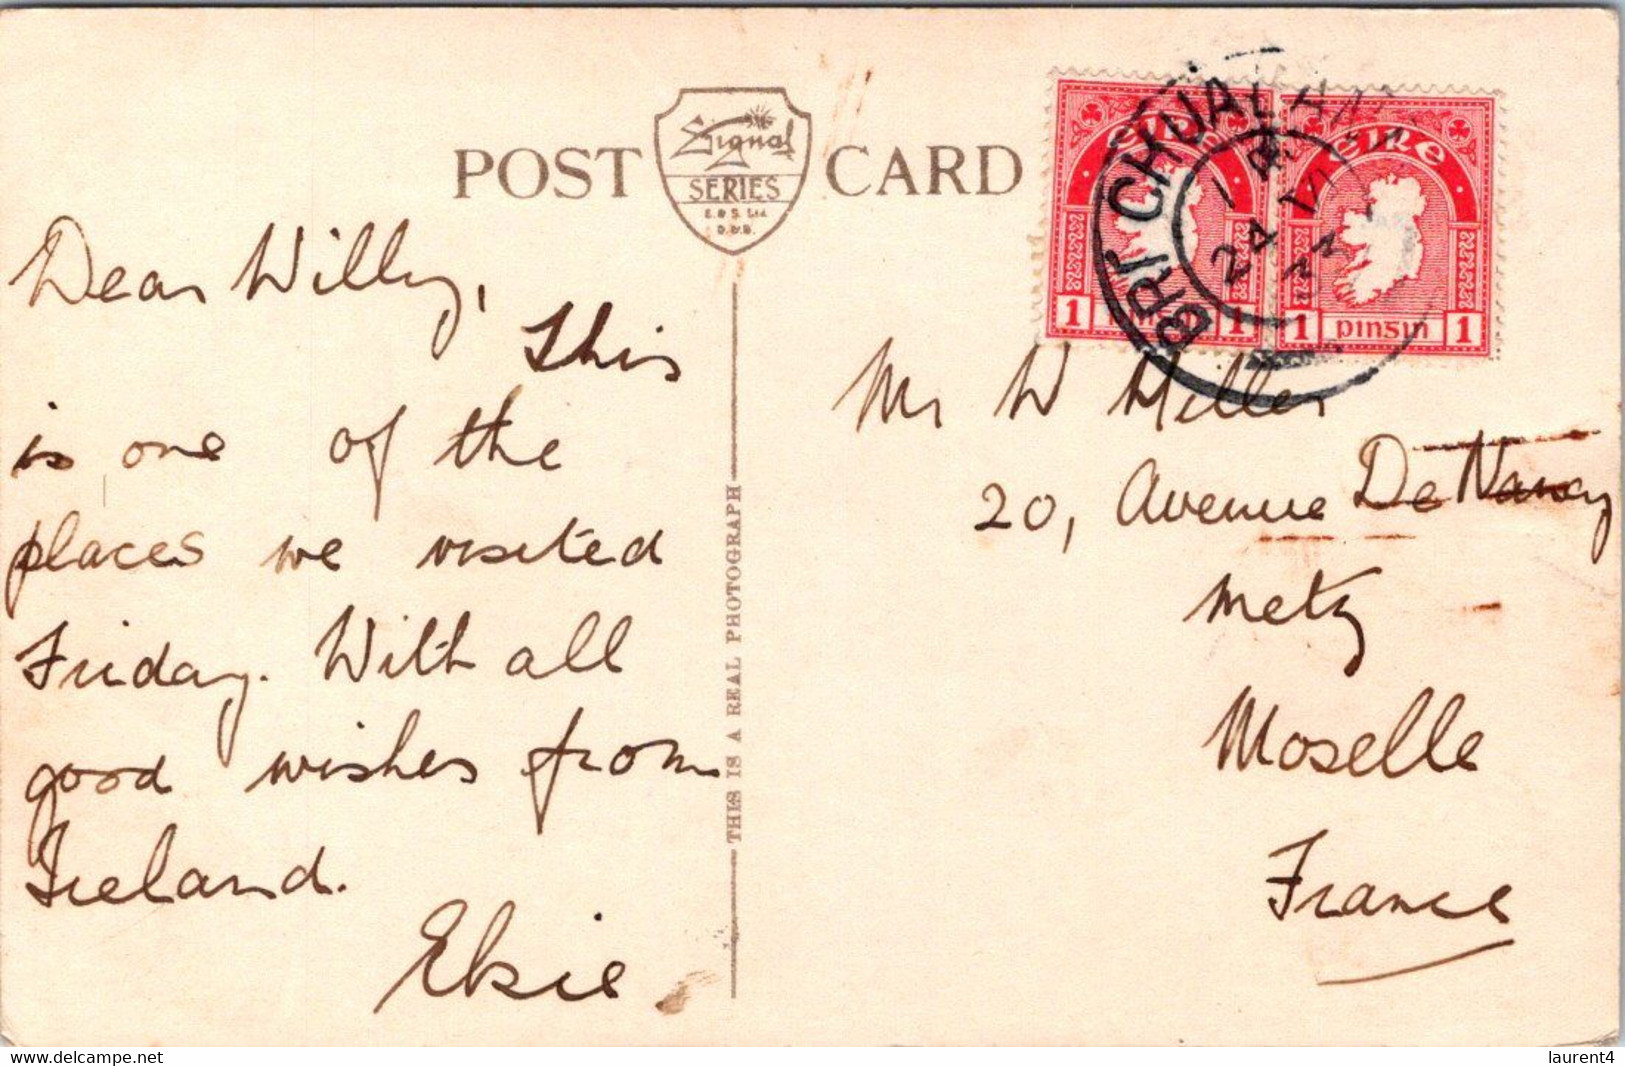 POST CARD
Signal
SERIES
E. & S. Ltd
D.&B.
Dear Willy,
This
is one of the
places we visited
Friday. With all
good wishes from
Ireland.
Elsie
THIS IS A REAL PHOTOGRAPH
BRI CHUALANN
24 VI
EIRE
1 1
EIRE
1 PINSIN 1
Mr W Heller
20, Avenue De Nancy
Metz
Moselle
France
www.delcampe.net
laurent4